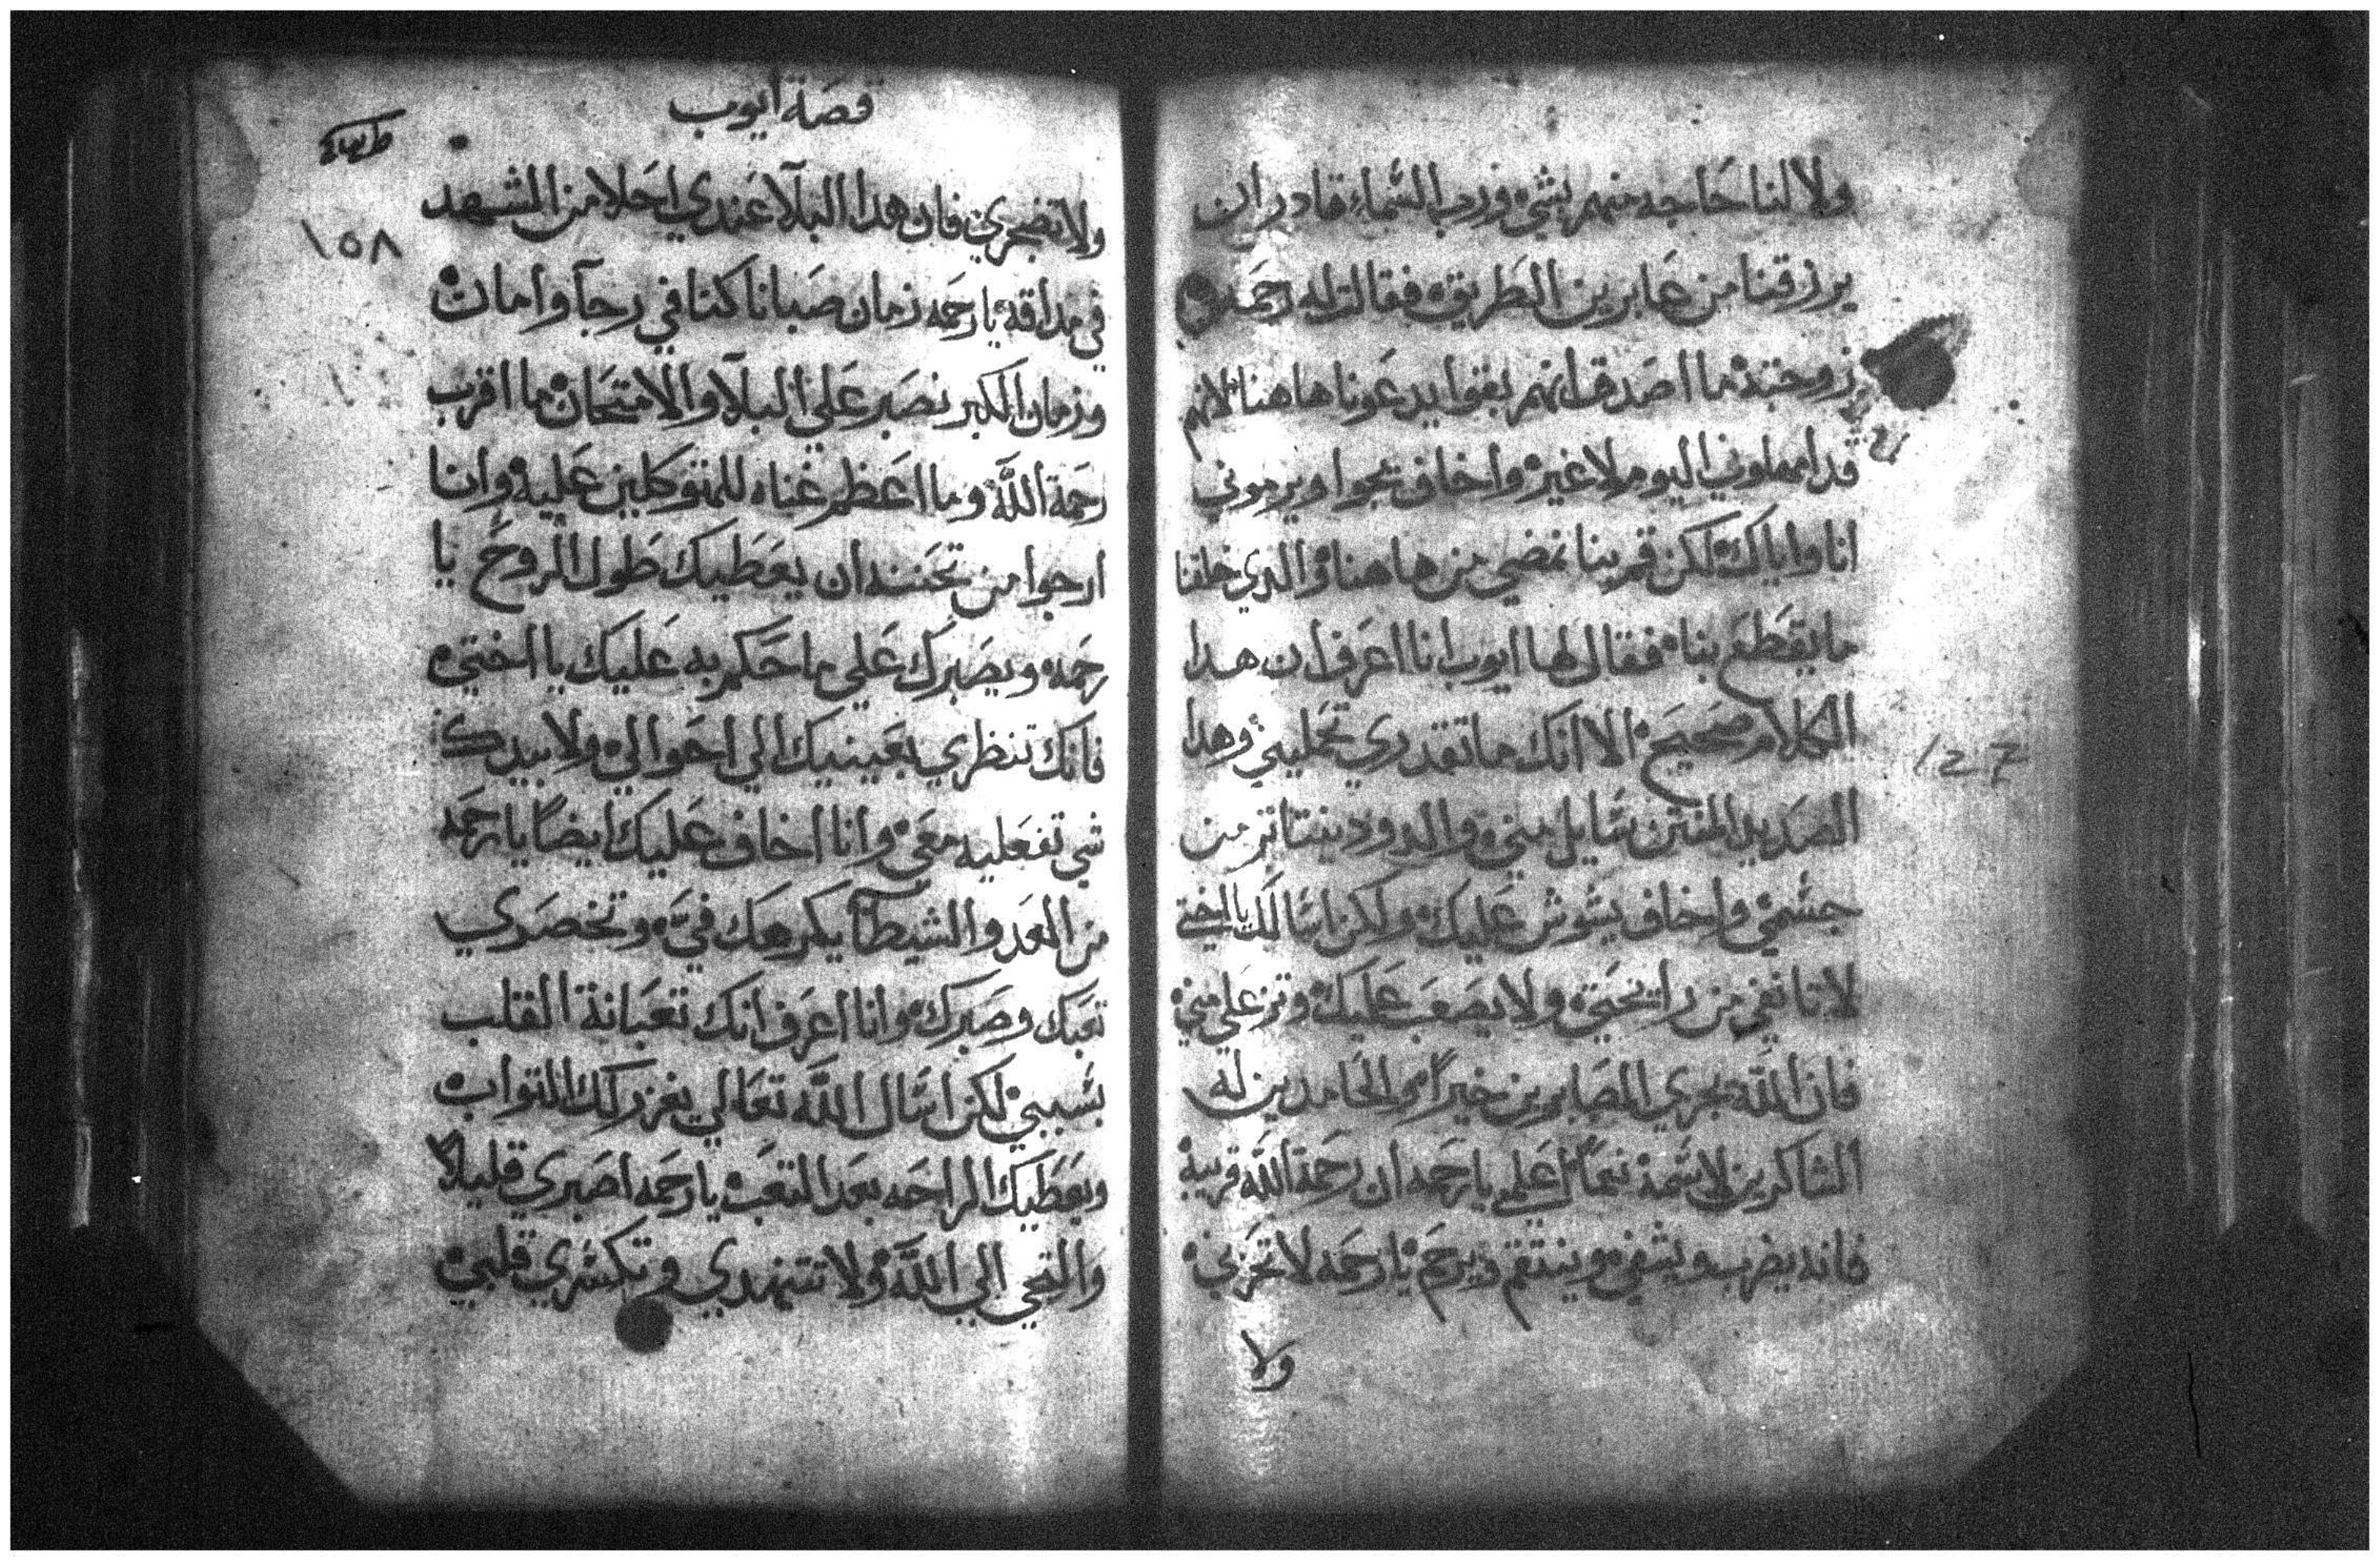 ولا لنا حاجه منهم بشي ورب السماء قادر ان
يرزقنا من عابرين الطريق فقالت له رحمه
زوجته ما اصدق انهم بقوا يدعونا هاهنا لانهم
قد امهلوني اليوم لا غير واخاف يجوا ويرموني
انا واياك لكن قم بنا نمضي من هاهنا والدي خلقنا
ما يقطع بنا فقال لها ايوب انا اعرف ان هدا
الكلام صحيح الا انك ما تقدري تحمليني وهدا
الصديد المنتن سايل مني والدود يتناتر من
جسمي واخاف يشوش عليك ولكن اسالك يا اختي
لا تانفي من رايحتي ولا يصعب عليك وتزعلي مني
فان الله يجزي الصابرين خيراً والحامدين له
الشاكرين لاسمه نعماً اعلمي يا رحمه ان رحمة الله قريبة
فانه يضرب ويشفي وينتقم ويرحم يا رحمه لا تحزني
ولا
127
قصة ايوب
١٥٨
ولا تضجري فان هدا البلآ عندي احلا من الشهد
في مداقه يا رحمه زمان صبانا كنا في رجآ وامان
وزمان الكبر نصبر علي البلآ والامتحان ما اقرب
رحمة الله وما اعظم غناه للمتوكلين عليه وانا
ارجوا من تحننه ان يعطيك طول الروح يا
رحمه ويصبرك علي ما حكم به عليك يا اختي
فانك تنظري بعينيك الي احوالي ولا بيدك
شي تفعليه معي وانا اخاف عليك ايضاً يا رحمه
من العدو الشيطان يكرهك فيّ وتخصري
تعبك وصبرك وانا اعرف انك تعبانة القلب
بسببي لكن اسال الله تعالي يغزر لك التواب
ويعطيك الراحه بعد التعب يا رحمه اصبري قليلاً
والتجي الي الله ولا تتنهدي وتكسري قلبي